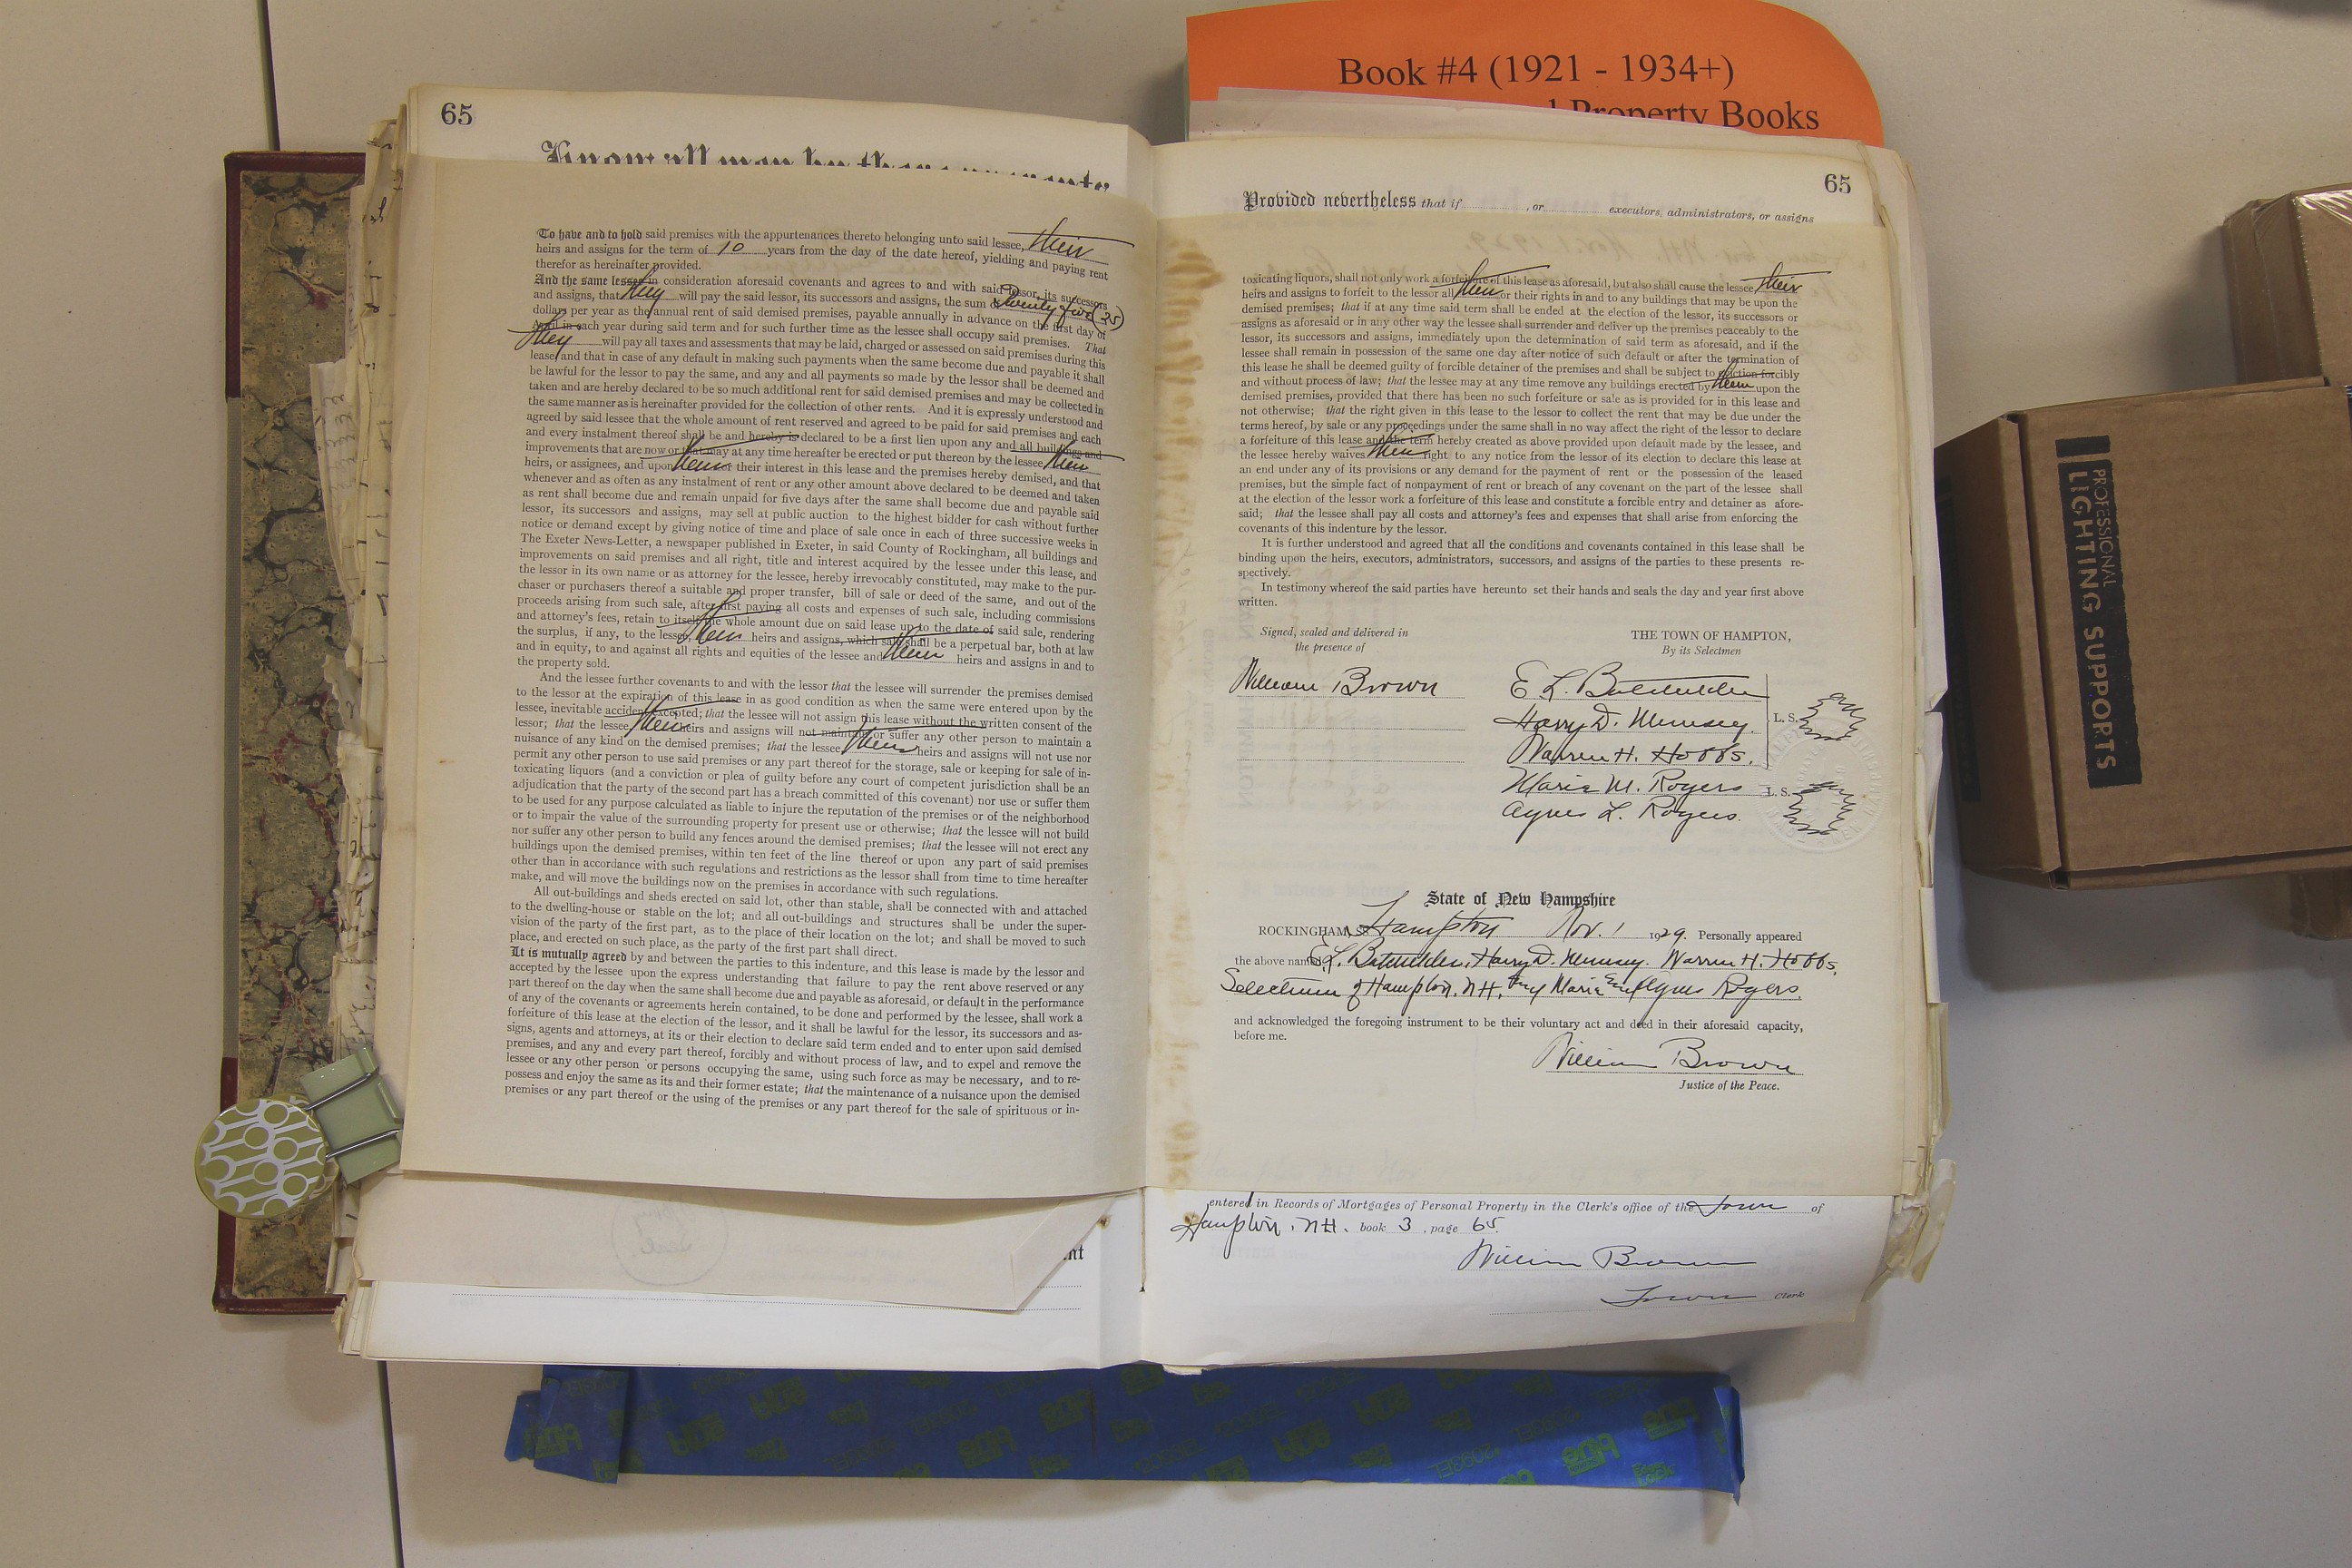 Book #4 (1921 - 1934+)
Property Books
65
Know all men by these presents
To have and to hold said premises with the appurtenances thereto belonging unto said lessee, their
heirs and assigns for the term of 10 years from the day of the date hereof, yielding and paying rent
therefor as hereinafter provided.
And the same lessee in consideration aforesaid covenants and agrees to and with said lessor, its successors
and assigns, that they will pay the said lessor, its successors and assigns, the sum of Twenty five (25)
dollars per year as the annual rent of said demised premises, payable annually in advance on the first day of
April in each year during said term and for such further time as the lessee shall occupy said premises. That
they will pay all taxes and assessments that may be laid, charged or assessed on said premises during this
lease, and that in case of any default in making such payments when the same become due and payable it shall
be lawful for the lessor to pay the same, and any and all payments so made by the lessor shall be deemed and
taken and are hereby declared to be so much additional rent for said demised premises and may be collected in
the same manner as is hereinafter provided for the collection of other rents. And it is expressly understood and
agreed by said lessee that the whole amount of rent reserved and agreed to be paid for said premises and each
and every instalment thereof shall be and hereby is declared to be a first lien upon any and all buildings and
improvements that are now or that may at any time hereafter be erected or put thereon by the lessee, their
heirs, or assignees, and upon their or their interest in this lease and the premises hereby demised, and that
whenever and as often as any instalment of rent or any other amount above declared to be deemed and taken
as rent shall become due and remain unpaid for five days after the same shall become due and payable said
lessor, its successors and assigns, may sell at public auction to the highest bidder for cash without further
notice or demand except by giving notice of time and place of sale once in each of three successive weeks in
The Exeter News-Letter, a newspaper published in Exeter, in said County of Rockingham, all buildings and
improvements on said premises and all right, title and interest acquired by the lessee under this lease, and
the lessor in its own name or as attorney for the lessee, hereby irrevocably constituted, may make to the pur-
chaser or purchasers thereof a suitable and proper transfer, bill of sale or deed of the same, and out of the
proceeds arising from such sale, after first paying all costs and expenses of such sale, including commissions
and attorney's fees, retain to itself the whole amount due on said lease up to the date of said sale, rendering
the surplus, if any, to the lessee, their heirs and assigns, which sale shall be a perpetual bar, both at law
and in equity, to and against all rights and equities of the lessee and their heirs and assigns in and to
the property sold.
And the lessee further covenants to and with the lessor that the lessee will surrender the premises demised
to the lessor at the expiration of this lease in as good condition as when the same were entered upon by the
lessee, inevitable accident excepted; that the lessee will not assign this lease without the written consent of the
lessor; that the lessee, their heirs and assigns will not maintain or suffer any other person to maintain a
nuisance of any kind on the demised premises; that the lessee, their heirs and assigns will not use nor
permit any other person to use said premises or any part thereof for the storage, sale or keeping for sale of in-
toxicating liquors (and a conviction or plea of guilty before any court of competent jurisdiction shall be an
adjudication that the party of the second part has a breach committed of this covenant) nor use or suffer them
to be used for any purpose calculated as liable to injure the reputation of the premises or of the neighborhood
or to impair the value of the surrounding property for present use or otherwise; that the lessee will not build
nor suffer any other person to build any fences around the demised premises; that the lessee will not erect any
buildings upon the demised premises, within ten feet of the line thereof or upon any part of said premises
other than in accordance with such regulations and restrictions as the lessor shall from time to time hereafter
make, and will move the buildings now on the premises in accordance with such regulations.
All out-buildings and sheds erected on said lot, other than stable, shall be connected with and attached
to the dwelling-house or stable on the lot; and all out-buildings and structures shall be under the super-
vision of the party of the first part, as to the place of their location on the lot; and shall be moved to such
place, and erected on such place, as the party of the first part shall direct.
It is mutually agreed by and between the parties to this indenture, and this lease is made by the lessor and
accepted by the lessee upon the express understanding that failure to pay the rent above reserved or any
part thereof on the day when the same shall become due and payable as aforesaid, or default in the performance
of any of the covenants or agreements herein contained, to be done and performed by the lessee, shall work a
forfeiture of this lease at the election of the lessor, and it shall be lawful for the lessor, its successors and as-
signs, agents and attorneys, at its or their election to declare said term ended and to enter upon said demised
premises, and any and every part thereof, forcibly and without process of law, and to expel and remove the
lessee or any other person or persons occupying the same, using such force as may be necessary, and to re-
possess and enjoy the same as its and their former estate; that the maintenance of a nuisance upon the demised
premises or any part thereof or the using of the premises or any part thereof for the sale of spirituous or in-
65
Provided nevertheless that if , or executors, administrators, or assigns
toxicating liquors, shall not only work a forfeiture of this lease as aforesaid, but also shall cause the lessee their
heirs and assigns to forfeit to the lessor all their or their rights in and to any buildings that may be upon the
demised premises; that if at any time said term shall be ended at the election of the lessor, its successors or
assigns as aforesaid or in any other way the lessee shall surrender and deliver up the premises peaceably to the
lessor, its successors and assigns, immediately upon the determination of said term as aforesaid, and if the
lessee shall remain in possession of the same one day after notice of such default or after the termination of
this lease he shall be deemed guilty of forcible detainer of the premises and shall be subject to eviction forcibly
and without process of law; that the lessee may at any time remove any buildings erected by them upon the
demised premises, provided that there has been no such forfeiture or sale as is provided for in this lease and
not otherwise; that the right given in this lease to the lessor to collect the rent that may be due under the
terms hereof, by sale or any proceedings under the same shall in no way affect the right of the lessor to declare
a forfeiture of this lease and the term hereby created as above provided upon default made by the lessee, and
the lessee hereby waives their right to any notice from the lessor of its election to declare this lease at
an end under any of its provisions or any demand for the payment of rent or the possession of the leased
premises, but the simple fact of nonpayment of rent or breach of any covenant on the part of the lessee shall
at the election of the lessor work a forfeiture of this lease and constitute a forcible entry and detainer as afore-
said; that the lessee shall pay all costs and attorney's fees and expenses that shall arise from enforcing the
covenants of this indenture by the lessor.
It is further understood and agreed that all the conditions and covenants contained in this lease shall be
binding upon the heirs, executors, administrators, successors, and assigns of the parties to these presents re-
spectively.
In testimony whereof the said parties have hereunto set their hands and seals the day and year first above
written.
Signed, sealed and delivered in
the presence of
THE TOWN OF HAMPTON,
By its Selectmen
William Brown
E L. Batchelder
Harry D. Munsey
Warren H. Hobbs.
L. S.
Maria M. Rogers
L. S.
Agnes L. Rogers.
State of New Hampshire
ROCKINGHAM, SS Hampton Nov. 1 1929. Personally appeared
the above named E L. Batchelder, Harry D. Munsey. Warren H. Hobbs,
Selectmen of Hampton, N.H. Maria Agnes Rogers.
and acknowledged the foregoing instrument to be their voluntary act and deed in their aforesaid capacity,
before me.
William Brown
Justice of the Peace.
entered in Records of Mortgages of Personal Property in the Clerk's office of the Town of
Hampton, N.H. book 3, page 65
William Brown
Town Clerk
PROFESSIONAL
LIGHTING SUPPORTS